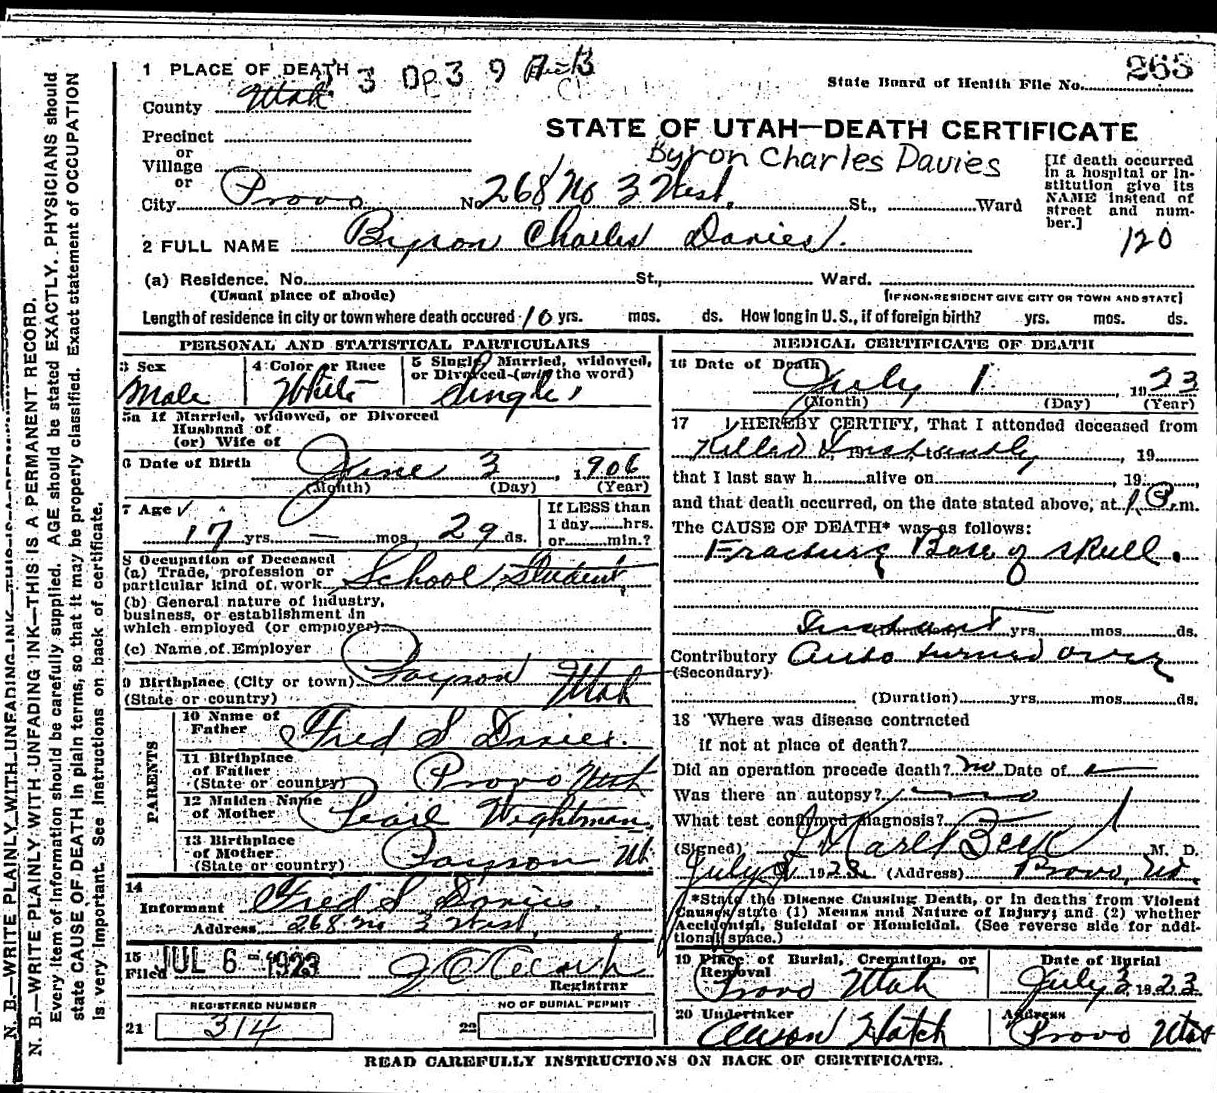 263
1 PLACE OF DEATH
State Board of Health File No.
County Utah
STATE OF UTAH—DEATH CERTIFICATE
Precinct
or
Village
or
Byron Charles Davies
[If death occurred in a hospital or institution give its NAME instead of street and number.]
City Provo No. 268 No 3 West. St., Ward
120
2 FULL NAME Byron Charles Davies.
(a) Residence. No. St., Ward.
(Usual place of abode) [IF NON-RESIDENT GIVE CITY OR TOWN AND STATE]
Length of residence in city or town where death occured 10 yrs. mos. ds. How long in U. S., if of foreign birth? yrs. mos. ds.
PERSONAL AND STATISTICAL PARTICULARS
3 Sex
Male
4 Color or Race
White
5 Single, Married, widowed, or Divorced (write the word)
Single.
5a If Married, widowed, or Divorced
Husband of
(or) Wife of
6 Date of Birth June 3, 1906
(Month) (Day) (Year)
7 Age
17 yrs. — mos. 29 ds.
If LESS than
1 day......hrs.
or......min.?
8 Occupation of Deceased
(a) Trade, profession or
particular kind of work School Student
(b) General nature of industry,
business, or establishment in
which employed (or employer)
(c) Name of Employer
9 Birthplace (City or town) Payson Utah
(State or country)
PARENTS
10 Name of
Father Fred S Davies.
11 Birthplace
of Father
(State or country) Provo Utah
12 Maiden Name
of Mother Pearl Wightman
13 Birthplace
of Mother
(State or country) Payson Ut.
14
Informant Fred S Davies.
Address 268 no 3 West.
15
Filed JUL 6 - 1923
Registrar
REGISTERED NUMBER NO OF BURIAL PERMIT
21 314 22
MEDICAL CERTIFICATE OF DEATH
16 Date of Death July 1, 1923
(Month) (Day) (Year)
17 I HEREBY CERTIFY, That I attended deceased from
Killed Instantly, 19
that I last saw h alive on, 19,
and that death occurred, on the date stated above, at 1 P.m.
The CAUSE OF DEATH* was as follows:
Fracture Base of skull.
Instant yrs. mos. ds.
Contributory Auto turned over
(Secondary)
(Duration) yrs. mos. ds.
18 Where was disease contracted
if not at place of death?
Did an operation precede death? no Date of
Was there an autopsy? no
What test confirmed diagnosis?
(Signed) Karl Beck M. D.
July 1923. (Address) Provo, Ut.
*State the Disease Causing Death, or in deaths from Violent
Causes, state (1) Means and Nature of Injury; and (2) whether
Accidental, Suicidal or Homicidal. (See reverse side for addi-
tional space.)
19 Place of Burial, Cremation, or
Removal
Provo Utah
Date of Burial
July 3, 1923
20 Undertaker
Anson Hatch
Address
Provo Utah
READ CAREFULLY INSTRUCTIONS ON BACK OF CERTIFICATE.
N. B.—WRITE PLAINLY WITH UNFADING INK—THIS IS A PERMANENT RECORD.
N. B.—WRITE PLAINLY WITH UNFADING INK—THIS IS A PERMANENT RECORD.
Every item of information should be carefully supplied. AGE should be stated EXACTLY. PHYSICIANS should
state CAUSE OF DEATH in plain terms, so that it may be properly classified. Exact statement of OCCUPATION
is very important. See instructions on back of certificate.